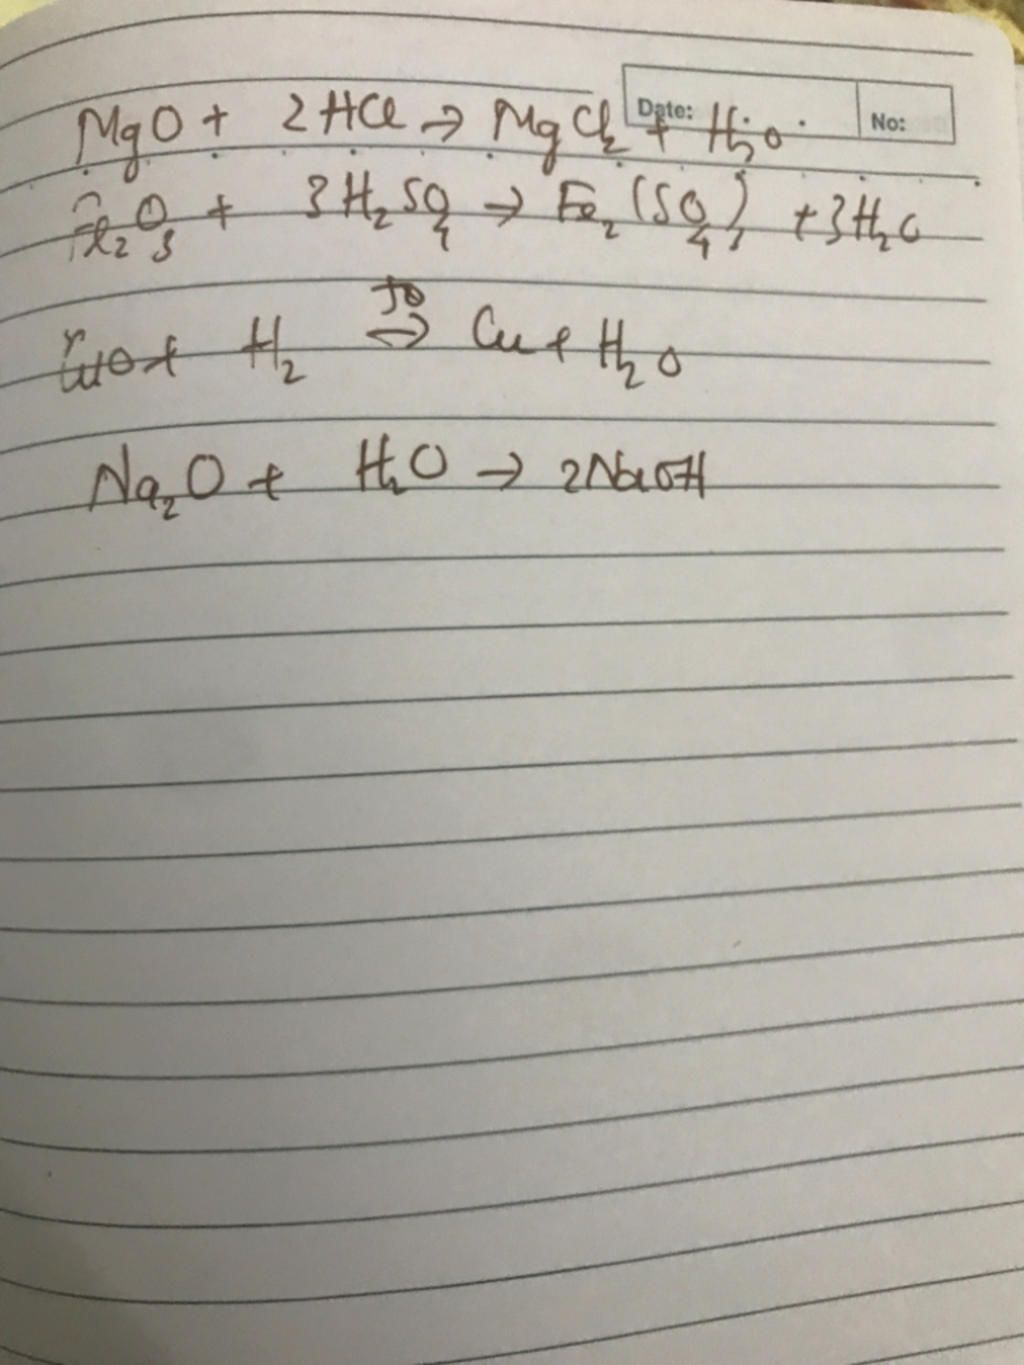 Date: No:
MgO + 2HCl → MgCl₂ + H₂O
Fe₂O₃ + 3H₂SO₄ → Fe₂(SO₄)₃ + 3H₂O
CuO + H₂ → Cu + H₂O
Na₂O + H₂O → 2NaOH